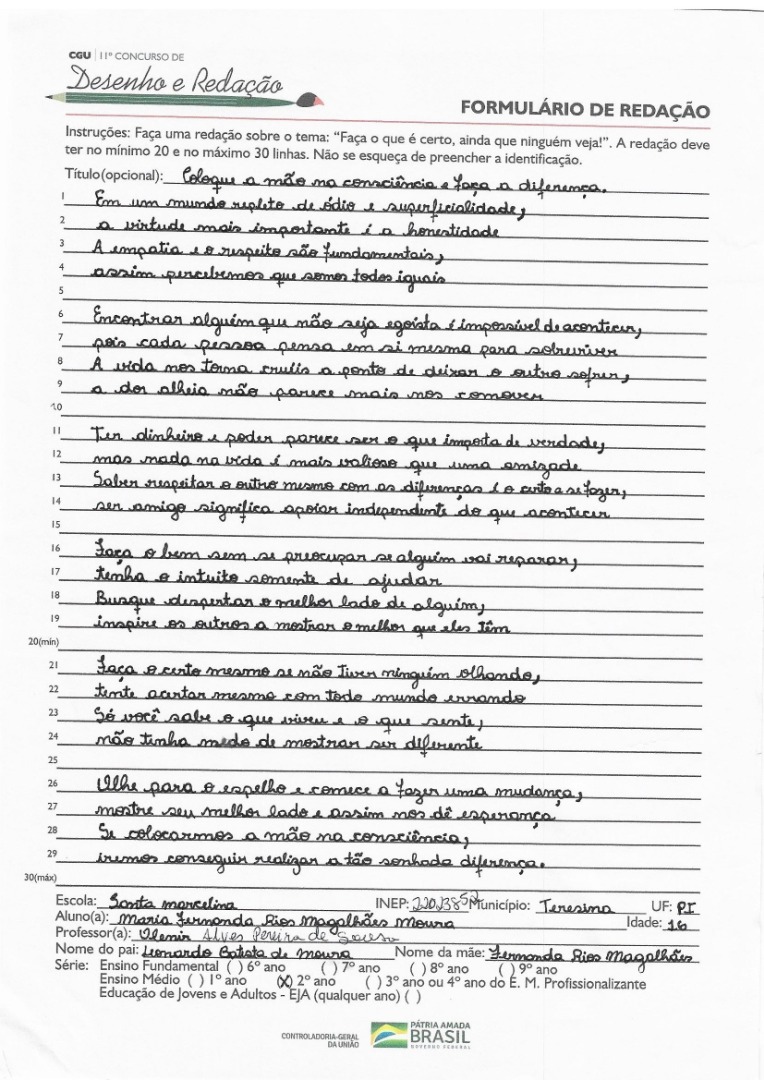 CGU | 11º CONCURSO DE
Desenho e Redação
FORMULÁRIO DE REDAÇÃO
Instruções: Faça uma redação sobre o tema: “Faça o que é certo, ainda que ninguém veja!”. A redação deve
ter no mínimo 20 e no máximo 30 linhas. Não se esqueça de preencher a identificação.
Título(opcional): Coloque a mão na consciência e faça a diferença.
1 Em um mundo repleto de ódio e superficialidade,
2 a virtude mais importante é a honestidade
3 A empatia e o respeito são fundamentais,
4 assim percebemos que somos todos iguais
5
6 Encontrar alguém que não seja egoísta é impossível de acontecer,
7 pois cada pessoa pensa em si mesma para sobreviver
8 A vida nos torna cruéis a ponto de deixar o outro sofrer,
9 a dor alheia não parece mais nos comover
10
11 Ter dinheiro e poder parece ser o que importa de verdade,
12 mas nada na vida é mais valioso que uma amizade
13 Saber respeitar o outro mesmo com as diferenças é o certo a se fazer,
14 ser amigo significa apoiar independente do que acontecer
15
16 Faça o bem sem se preocupar se alguém vai reparar,
17 tenha o intuito somente de ajudar
18 Busque despertar o melhor lado de alguém,
19 inspire os outros a mostrar o melhor que eles têm
20(mín)
21 Faça o certo mesmo se não tiver ninguém olhando,
22 tente acertar mesmo com todo mundo errando
23 Só você sabe o que viveu e o que sente,
24 não tenha medo de mostrar ser diferente
25
26 Olhe para o espelho e comece a fazer uma mudança,
27 mostre seu melhor lado e assim nos dê esperança
28 Se colocarmos a mão na consciência,
29 iremos conseguir realizar a tão sonhada diferença.
30(máx)
Escola: Santa marcelina INEP: Município: Teresina UF: PI
Aluno(a): Maria Fernanda Rios Magalhães Moura Idade: 16
Professor(a): Alves Pereira de Sousa
Nome do pai: Leonardo Batista de Moura Nome da mãe: Fernanda Rios Magalhães
Série: Ensino Fundamental ( ) 6º ano ( ) 7º ano ( ) 8º ano ( ) 9º ano
Ensino Médio ( ) 1º ano (X) 2º ano ( ) 3º ano ou 4º ano do E. M. Profissionalizante
Educação de Jovens e Adultos - EJA (qualquer ano) ( )
CONTROLADORIA-GERAL
DA UNIÃO
PÁTRIA AMADA
BRASIL
GOVERNO FEDERAL